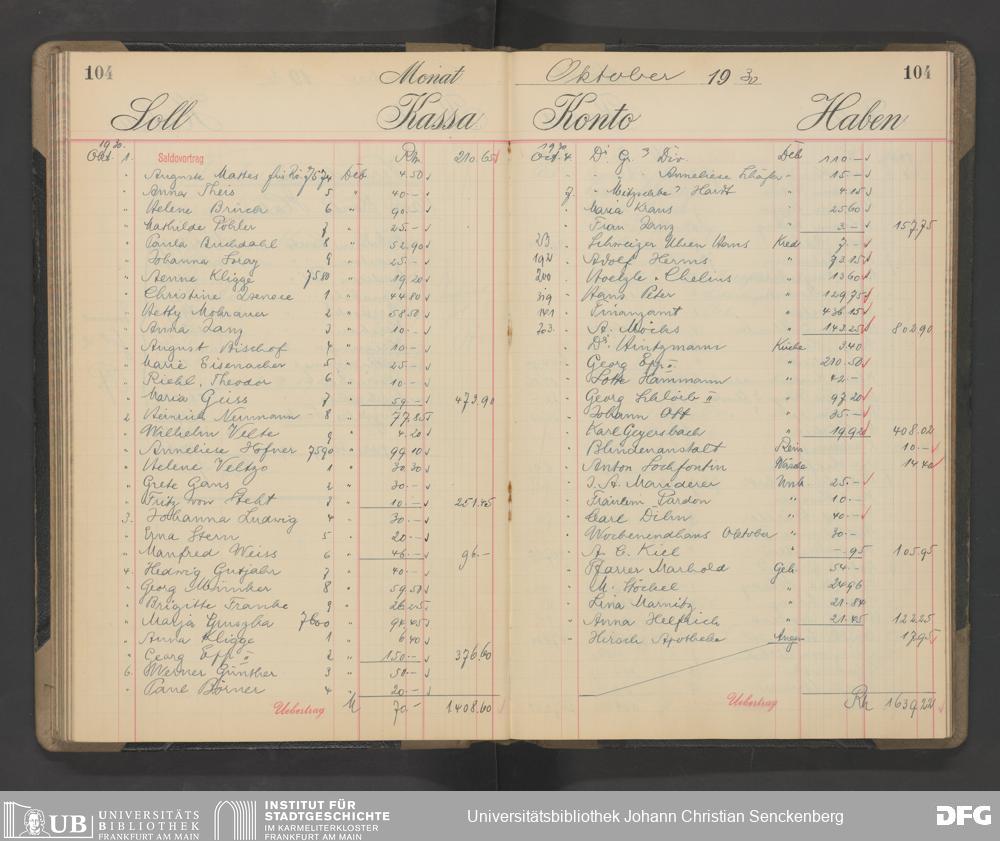 104 Monat Oktober 1930 104
Soll Kassa Konto Haben
1930.
Okt. 1. Saldovortrag Rm 210.65
" Auguste Mattes für Rö. 7574 Deb 4.50
" Anna Theis 5 " 40.-
" Helene Brüch 6 " 90.-
" Mathilde Pöhler 7 " 25.-
" Paula Buchdahl 8 " 52.90
" Johanna 9 " 25.-
" Aenne Kligge 7580 " 19.20
" Christine 1 " 44.80
" Hetty Mohrauer 2 " 58.50
" Anna Zanz 3 " 10.-
" August Bischof 4 " 10.-
" Marie Eisenacher 5 " 25.-
" Riehl, Theodor 6 " 10.-
" Maria Geiss 7 " 59.- 473.90
2 Heinrich Neumann 8 " 77.85
" Wilhelm Velte 9 " 4.20
" Anneliese Höfner 7590 " 99.10
" Helene Veltzo 1 " 30.30
" Grete Gans 2 " 30.-
" Fritz von Steht 3 " 10.- 251.45
3. Johanna Ludwig 4 " 30.-
" Erna Stern 5 " 20.-
" Manfred Weiss 6 " 46.- 96.-
4. Hedwig Gutjahr 7 " 40.-
" Georg Münnker 8 " 59.50
" Brigitte Franke 9 " 26.25
" Marja Gruszka 7600 " 94.45
" Anna Kligge 1 " 6.40
" Georg Opp II 2 " 150.- 376.60
6. Werner Günther 3 " 50.-
" Paul Börner 4 " 20.-
Uebertrag M 70.- 1408.60
1930
Oct. 4. Dr. G. Div. Deb 110.-
" " Anneliese " 15.-
" Hardt " 4.15
" Maria Kraus " 25.60
" Frau Zanz " 3.- 157.75
213 " Schweizer Uhren Hans Kred 7.-
192 " Adolf Herms " 73.15
200 " Hoelzle & Chelius " 13.60
" Hans Peter " 129.75
" Finanzamt " 436.15
203 " A. Möchs " 143.25 802.90
" Dr. Hintzmann Küche 3.40
" Georg Opp II " 210.50
" Lotte Hammann " 42.-
" Georg Schlörb II " 97.20
" Johann Ott " 35.-
" Karl Geyersbach " 19.92 408.02
" Blindenanstalt Rein 10.-
" Anton Hochfontin Wäsche 14.40
" J. A. Mariderer Unk 25.-
" Fräulein Pardon " 10.-
" Carl Dihn " 40.-
" Wochenendhaus Oktober " 30.-
" A. C. Kiel " -.95 105.95
" Pfarrer Marhold Geh. 54.-
" M. Stöckel " 24.96
" Lina Marnitz " 21.84
" Anna Helfrich " 21.45 122.25
" Hirsch Apotheke 17.95
Uebertrag Rm 1639.22
UB UNIVERSITÄTS
BIBLIOTHEK
FRANKFURT AM MAIN
INSTITUT FÜR
STADTGESCHICHTE
IM KARMELITERKLOSTER
FRANKFURT AM MAIN
Universitätsbibliothek Johann Christian Senckenberg
DFG